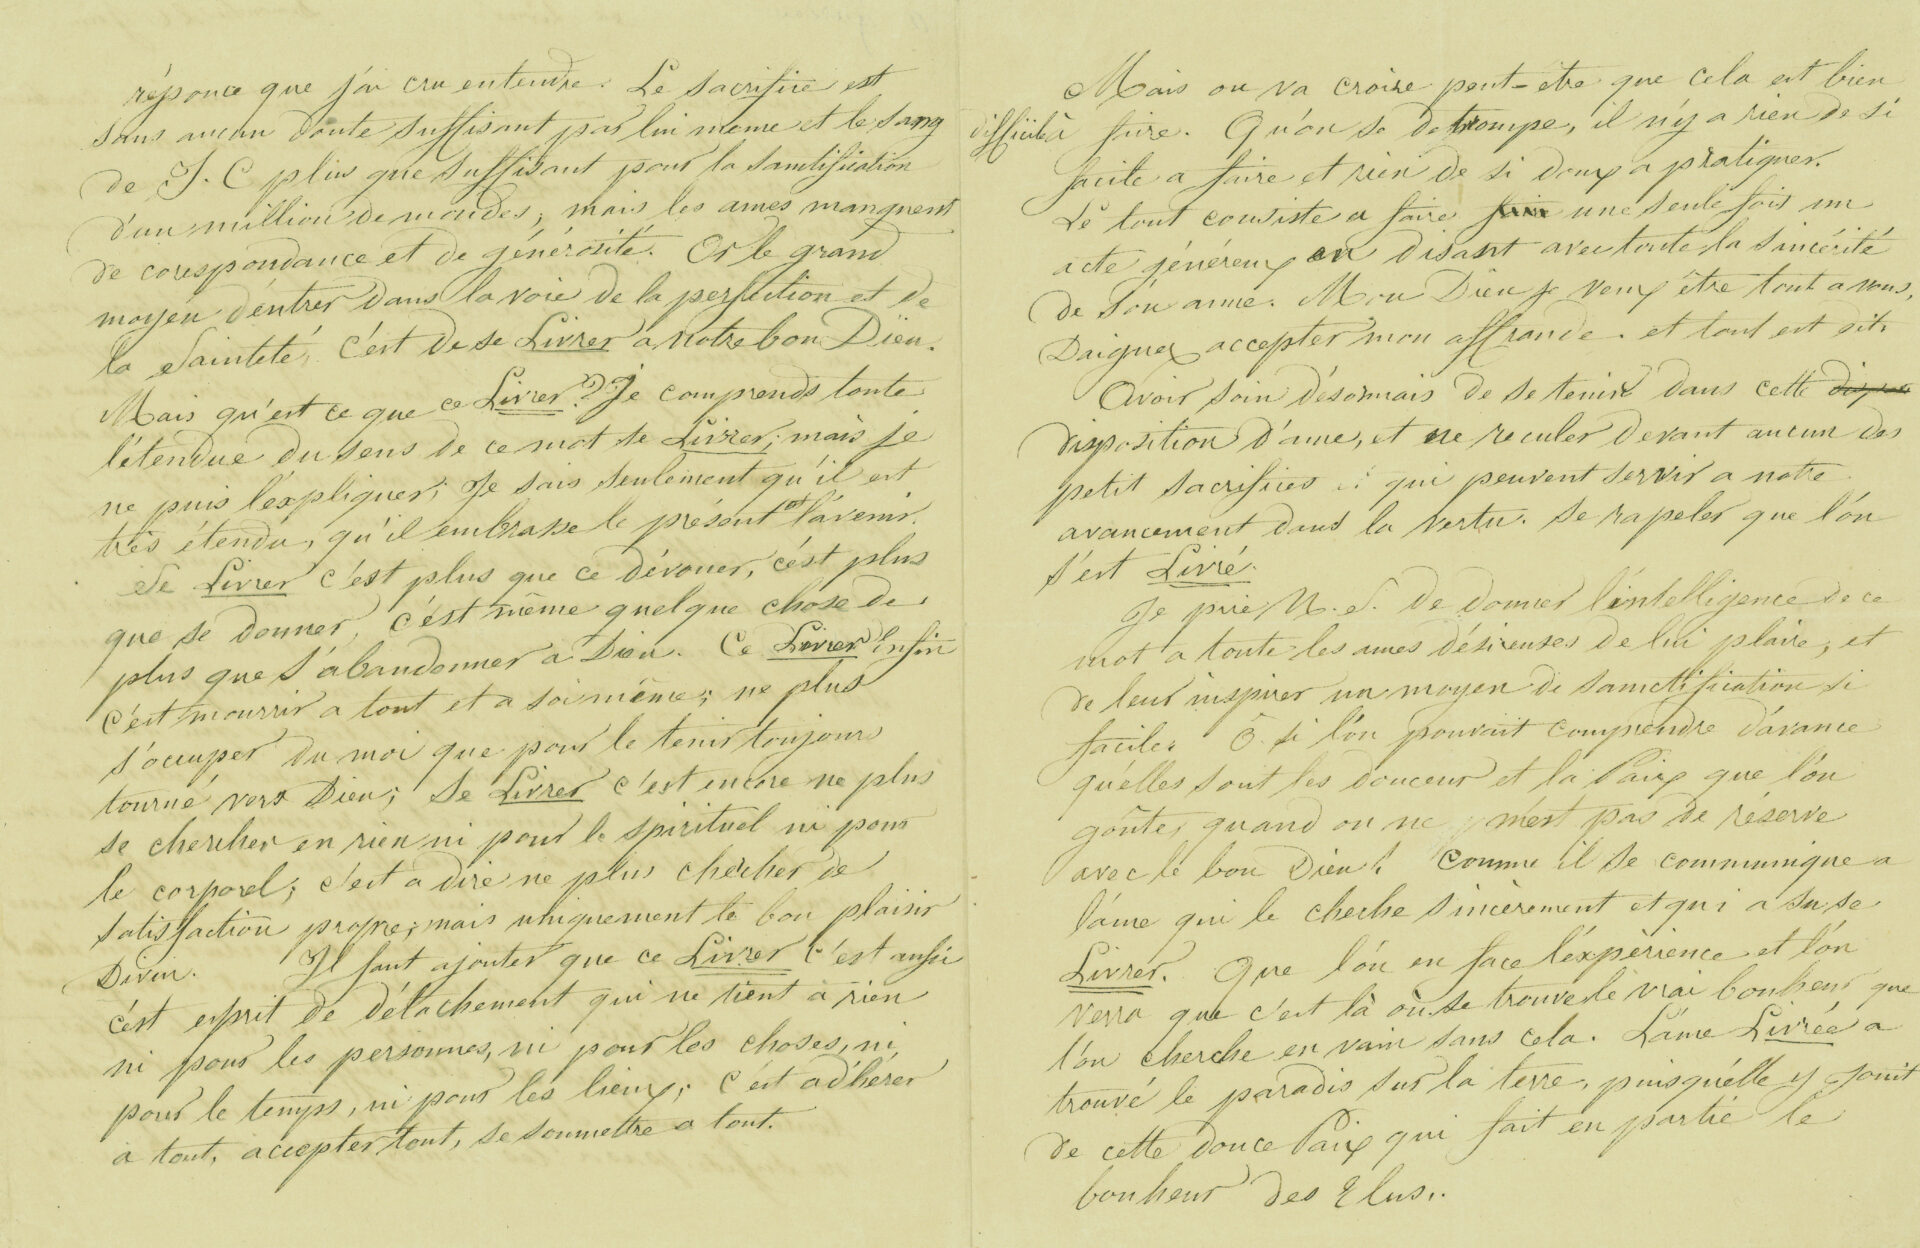 réponce que j'ai cru entendre. Le sacrifice est
sans aucun doute suffisant par lui meme et le sang
de J. C plus que suffisant pour la sanctification
d'un million de mondes, mais les ames manquent
de corespondance et de générosité. Or le grand
moyen d'entrer dans la voie de la perfection et de
la Sainteté, c'est de se Livrer a notre bon Dieu.
Mais qu'est ce que ce Livrer? Je comprends toute
l'étendue du sens de ce mot se Livrer; mais je
ne puis l'expliquer; Je sais seulement qu'il est
très étendu, qu'il embrasse le présent et l'avenir.
Se Livrer c'est plus que ce dévouer, c'est plus
que se donner, c'est même quelque chose de
plus que s'abandonner a Dieu. Ce Livrer enfin
c'est mourrir a tout et a soi même; ne plus
s'occuper du moi que pour le tenir toujours
tourné vers Dieu; Se Livrer c'est encore ne plus
se chercher en rien ni pour le spirituel ni pour
le corporel; c'est a dire ne plus chercher de
satisfaction propre; mais uniquement le bon plaisir
Divin. Il faut ajouter que ce Livrer c'est aussi
c'est esprit de détachement qui ne tient a rien
ni pour les personnes, ni pour les choses, ni
pour le temps, ni pour les lieux; c'est adhérer
a tout, accepter tout, se soumettre a tout.
Mais on va croire peut-être que cela est bien
difficile à faire. Qu'on se détrompe, il n'y a rien de si
facile a faire et rien de si doux a pratiquer.
Le tout consiste a faire une seule fois un
acte généreux en disant avec toute la sincérité
de son ame. Mon Dieu je veux être tout a vous,
Daignez accepter mon offrande. et tout est dit.
Avoir soin désormais de se tenir dans cette
disposition d'ame, et ne reculer devant aucun des
petit sacrifices qui peuvent servir a notre
avancement dans la vertu. Se rapeler que l'on
s'est Livré.
Je prie N. S. de donner l'intelligence de ce
mot a toute les ames désireuses de lui plaire, et
de leur inspirer un moyen de sanctification si
facile. Ô si l'on pouvait comprendre d'avance
qu'elles sont les douceur et la Paix que l'on
goûte, quand on ne m'est pas de réserve
avec le bon Dieu! Comme il se communique a
l'âme qui le cherche sincèrement et qui a su se
Livrer. Que l'on en face l'expérience et l'on
verra que c'est là où se trouve le vrai bonheur que
l'on cherche en vain sans cela. L'âme Livrée a
trouvé le paradis sur la terre, puisqu'elle y jouit
de cette douce Paix qui fait en partie le
bonheur des Elus.